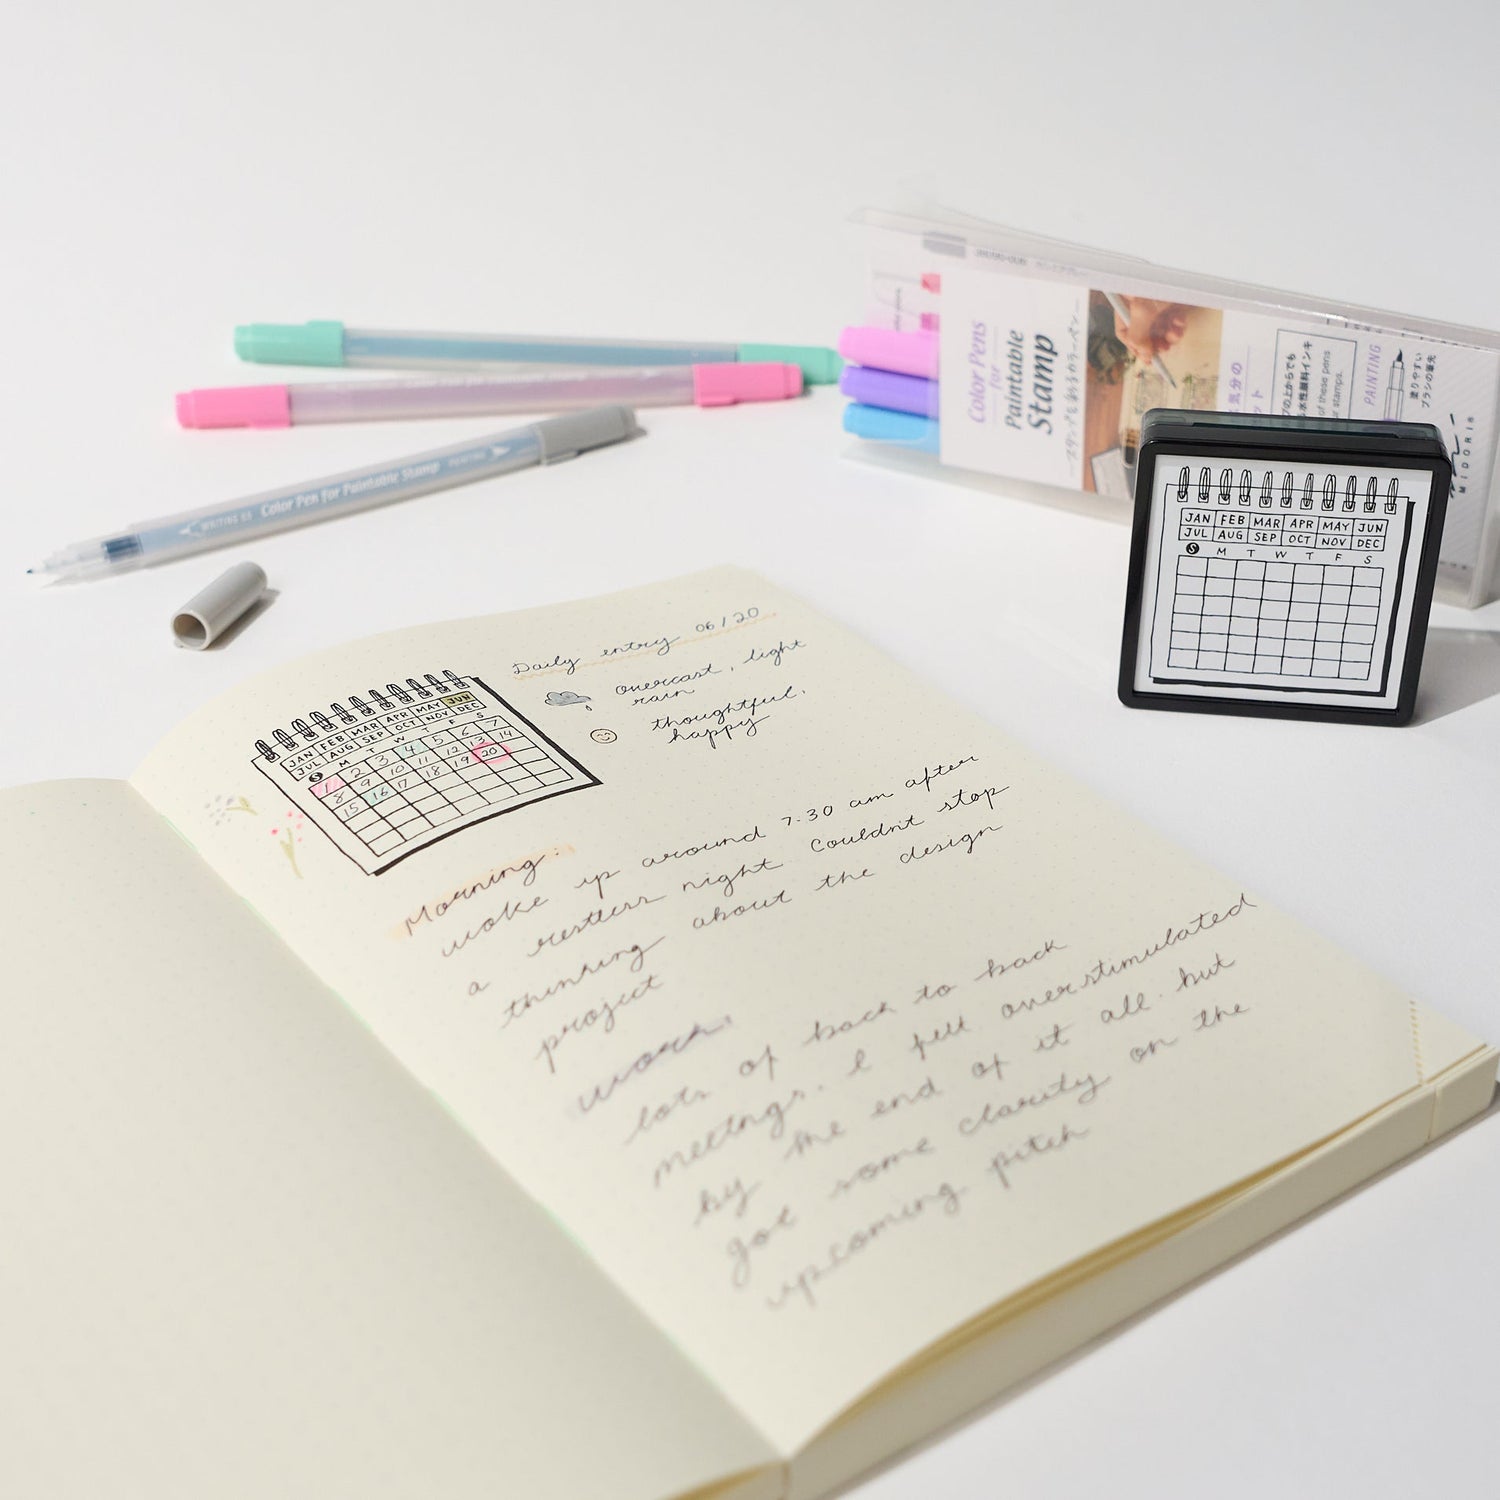 Color Pens
for
Paintable
Stamp
—スタンプも彩るカラーペン—
PAINTING
塗りやすい
ブラシの筆先
of these pens
r stamps.
MIDORI
WRITING 0.5 Color Pen for Paintable Stamp PAINTING
JAN FEB MAR APR MAY JUN
JUL AUG SEP OCT NOV DEC
S M T W T F S
Daily entry 06/20
overcast, light
rain
thoughtful,
happy
JAN FEB MAR APR MAY JUN
JUL AUG SEP OCT NOV DEC
S M T W T F S
1 2 3 4 5 6 7
8 9 10 11 12 13 14
15 16 17 18 19 20
Morning:
woke up around 7.30 am after
a restless night Couldn't stop
thinking about the design
project
work:
lots of back to back
meetings. I felt overstimulated
by the end of it all. but
got some clarity on the
upcoming pitch